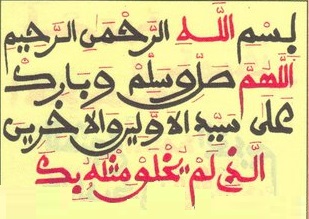 بسم الله الرحمن الرحيم
اللهم صل وسلم وبارك
على سيد الأولين والآخرين
الذي لم يخلق مثله